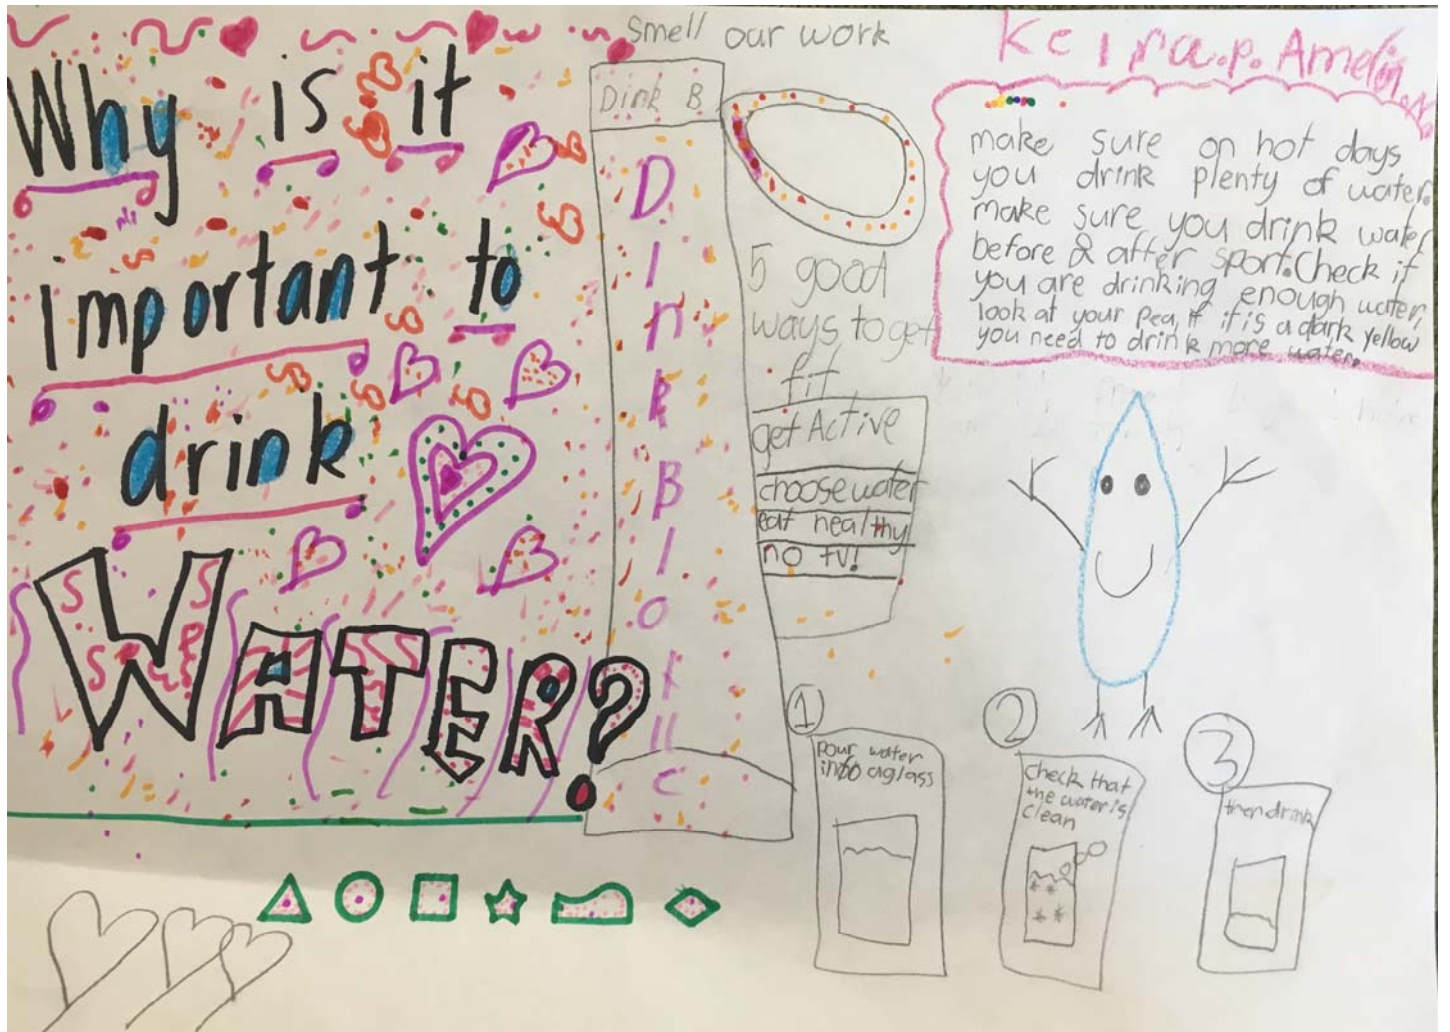 Why is it
Important to
drink
WATER?
smell our work
Dink B.
D
I
n
k
B
I
O
C
5 good
ways to get
fit
get Active
choose water
eat healthy
no tv!
Keira.p. Amelia.N
make sure on hot days
you drink plenty of water.
make sure you drink water
before & after sport. Check if
you are drinking enough water,
look at your pea, if it is a dark yellow
you need to drink more water.
1
pour water
into a glass
2
check that
the water is
clean
3
then drink